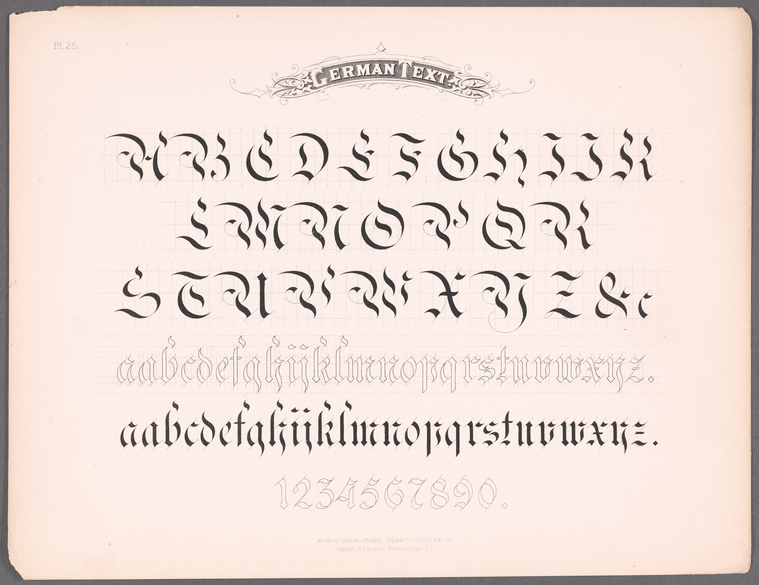 Pl. 25.
GERMAN TEXT
A B C D E F G H I J K
L M N O P Q R
S T U V W X Y Z & c
aabcdefghijklmnopqrstuvwxyz.
aabcdefghijklmnopqrstuvwxyz.
1234567890.